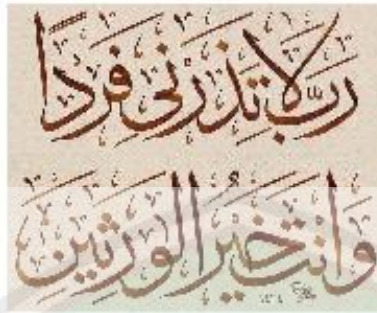 رَبِّ لَا تَذَرْنِي فَرْدًا
وَأَنْتَ خَيْرُ الْوَرِثِينَ